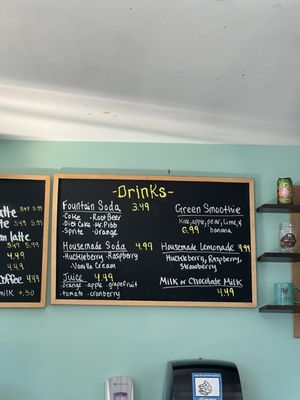 -Drinks-
Fountain Soda 3.49
-Coke -Root Beer
-Diet Coke -Mr. Pibb
-Sprite -Orange
Housemade Soda 4.99
-Huckleberry -Raspberry
-Vanilla Cream
Juice 4.49
-orange -apple -grapefruit
-tomato -cranberry
Green Smoothie
Kale, apple, pear, lime, &
6.99 banana
Housemade Lemonade 4.99
Huckleberry, Raspberry,
Strawberry
Milk or Chocolate Milk
4.49
latte
latte
latte
4.49
4.49
Coffee 4.49
milk +.50